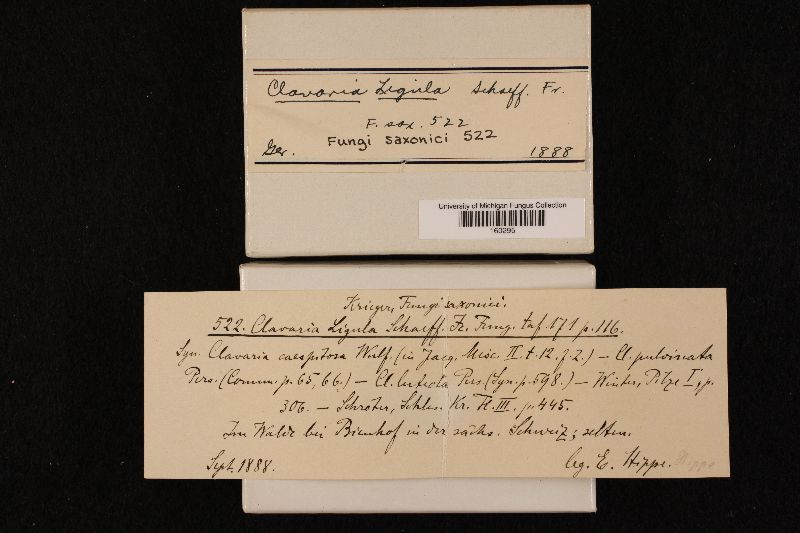 Clavaria Ligula Schaeff. Fr.
F. sax. 522
Fungi saxonici 522
Ger. 1888
University of Michigan Fungus Collection
160295
Krieger, Fungi saxonici.
522. Clavaria Ligula Schaeff. Fr. Fung. taf. 171 p. 116.
Syn. Clavaria caespitosa Wulf (in Jacq. Misc. II. t. 12. f. 2.) — Cl. pulvinata
Pers. (Comm. p. 65, 66.) — Cl. luteola Pers. (Syn. p. 598.) — Winter, Pilze I, p.
306. — Schröter, Schles. Kr. Fl. III. p. 445.
Im Walde bei Bienhof in der sächs. Schweiz; selten.
Sept. 1888. leg. E. Hippe. Hippe